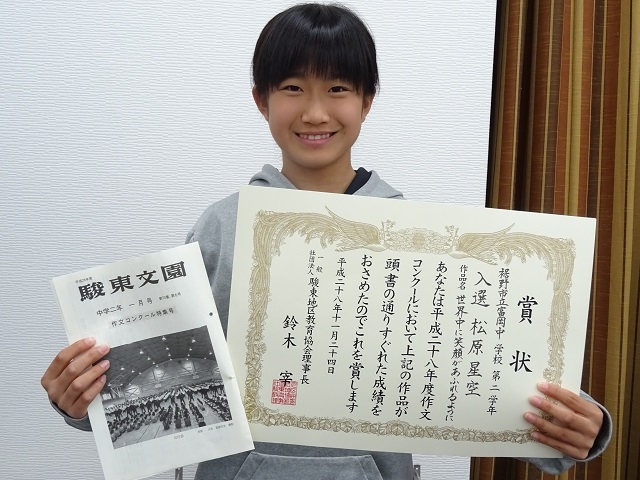 平成28年度
駿東文園
中学二年 一月号
作文コンクール特集号
賞状
裾野市立富岡中学校 第二学年
入選 松原星空
作品名 世界中に笑顔があふれるように
あなたは平成二十八年度作文
コンクールにおいて上記の作品が
頭書の通りすぐれた成績を
おさめたのでこれを賞します
平成二十八年十一月二十四日
一般
社団法人 駿東地区教育協会理事長
鈴木